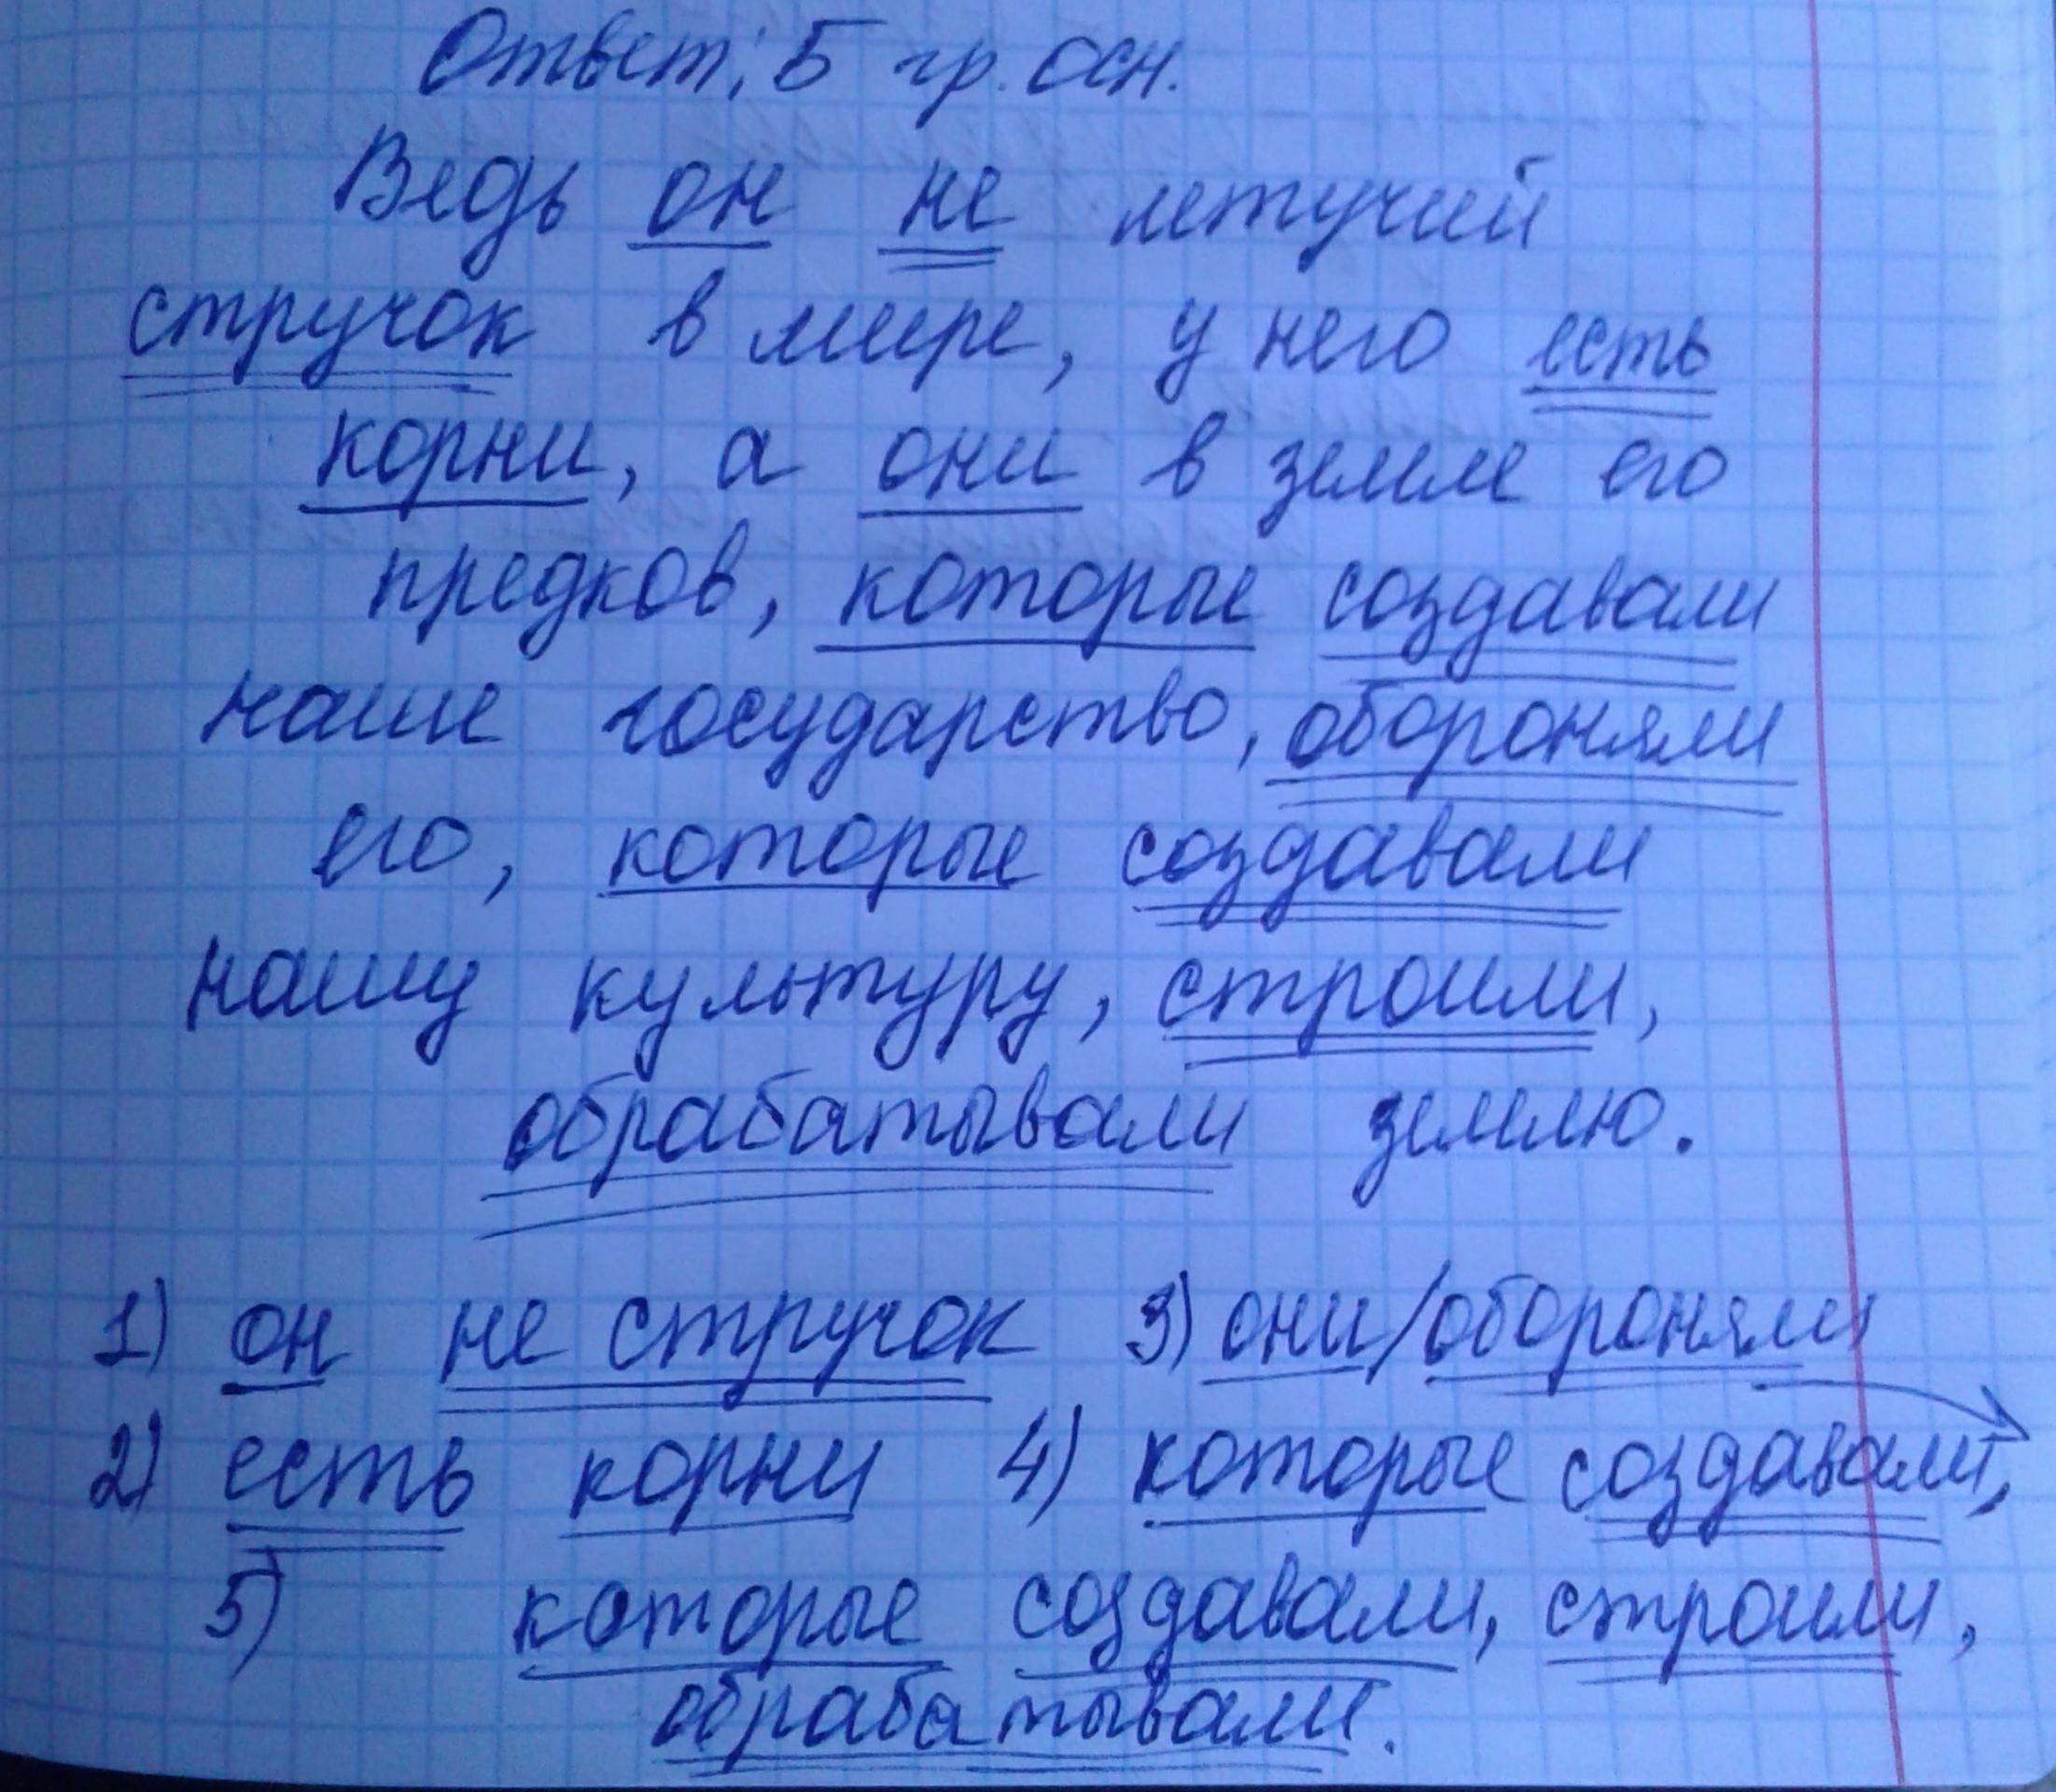 Ответ: 5 гр. осн.
Ведь он не летучий
стручок в мире, у него есть
корни, а они в земле его
предков, которые создавали
наше государство, обороняли
его, которые создавали
нашу культуру, строили,
обрабатывали землю.
1) он не стручок 3) они/обороняли
2) есть корни 4) которые создавали,
5) которые создавали, строили,
обрабатывали.